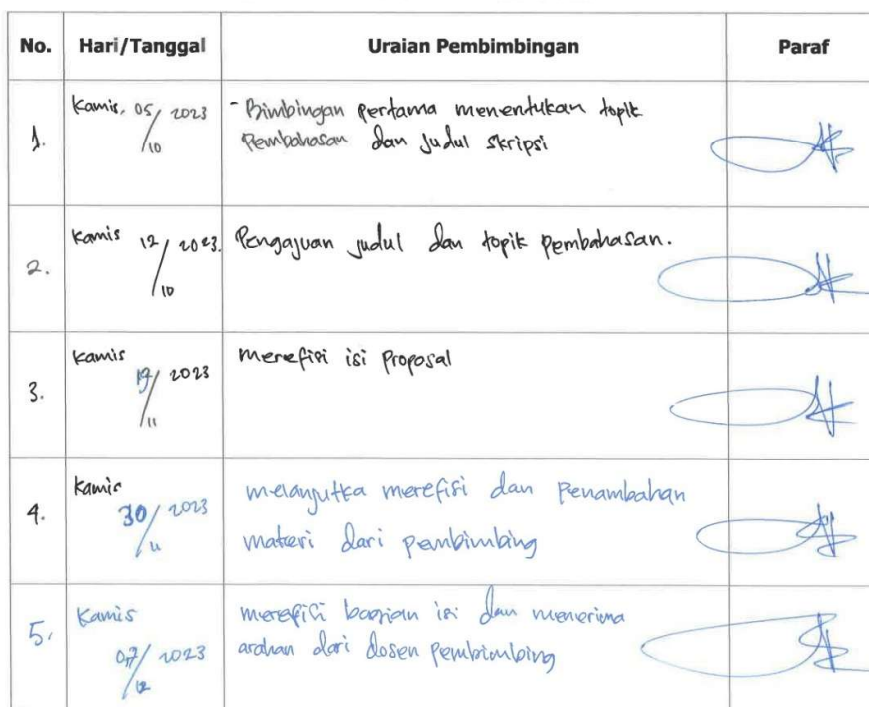 No. Hari/Tanggal Uraian Pembimbingan Paraf
1. Kamis, 05/10 2023 - Bimbingan pertama menentukan topik
Pembahasan dan Judul skripsi
2. Kamis 12/10 2023. Pengajuan judul dan topik pembahasan.
3. Kamis /11 2023 merefisi isi Proposal
4. Kamis 30/11 2023 melanjutka merefisi dan Penambahan
materi dari pembimbing
5. Kamis 07/12 2023 merefisi bagian isi dan menerima
arahan dari dosen pembimbing